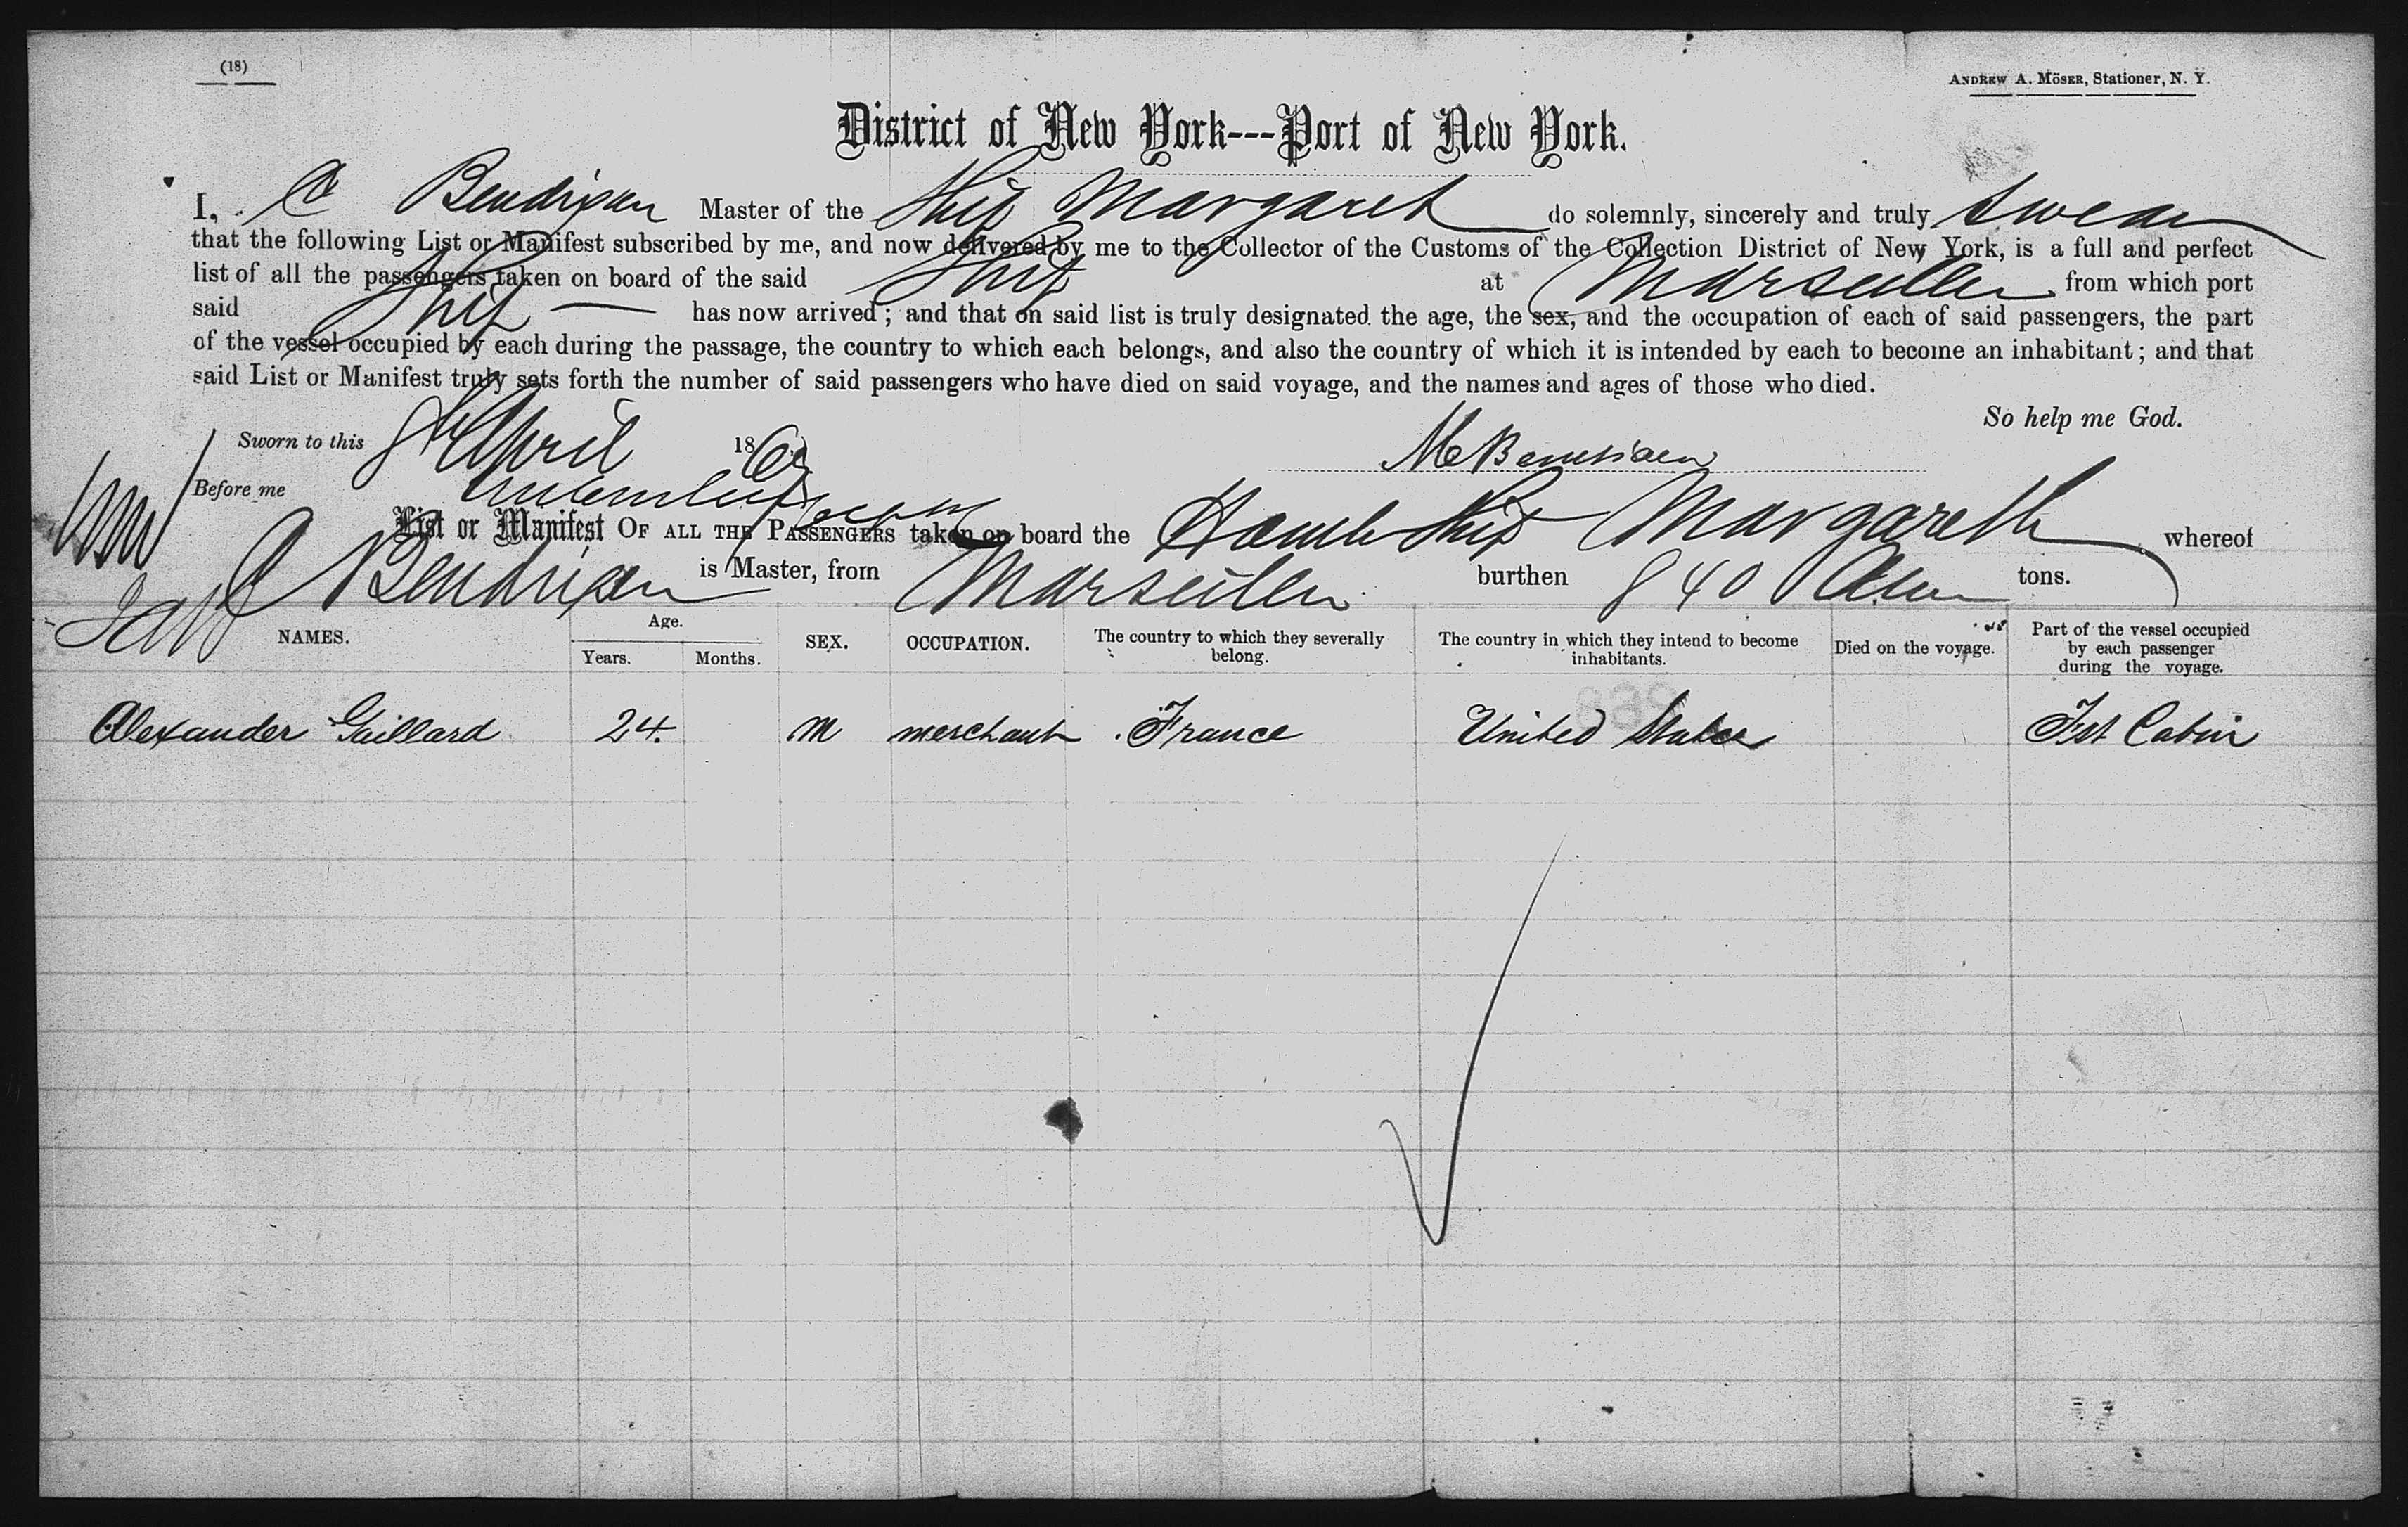 (18)
ANDREW A. MÖSER, Stationer, N. Y.
District of New York---Port of New York.
I, Master of the Ship Margaret do solemnly, sincerely and truly swear
that the following List or Manifest subscribed by me, and now delivered by me to the Collector of the Customs of the Collection District of New York, is a full and perfect
list of all the passengers taken on board of the said Ship at Marseilles from which port
said Ship has now arrived; and that on said list is truly designated the age, the sex, and the occupation of each of said passengers, the part
of the vessel occupied by each during the passage, the country to which each belongs, and also the country of which it is intended by each to become an inhabitant; and that
said List or Manifest truly sets forth the number of said passengers who have died on said voyage, and the names and ages of those who died.
So help me God.
Sworn to this 8th April 186
Before me
List or Manifest OF ALL THE PASSENGERS taken on board the Ship Margareth whereof
is Master, from Marseilles burthen 840 tons.
NAMES. Age. Years. Months. SEX. OCCUPATION. The country to which they severally belong. The country in which they intend to become inhabitants. Died on the voyage. Part of the vessel occupied by each passenger during the voyage.
Alexander Gaillard 24. M merchant France United States Fst Cabin